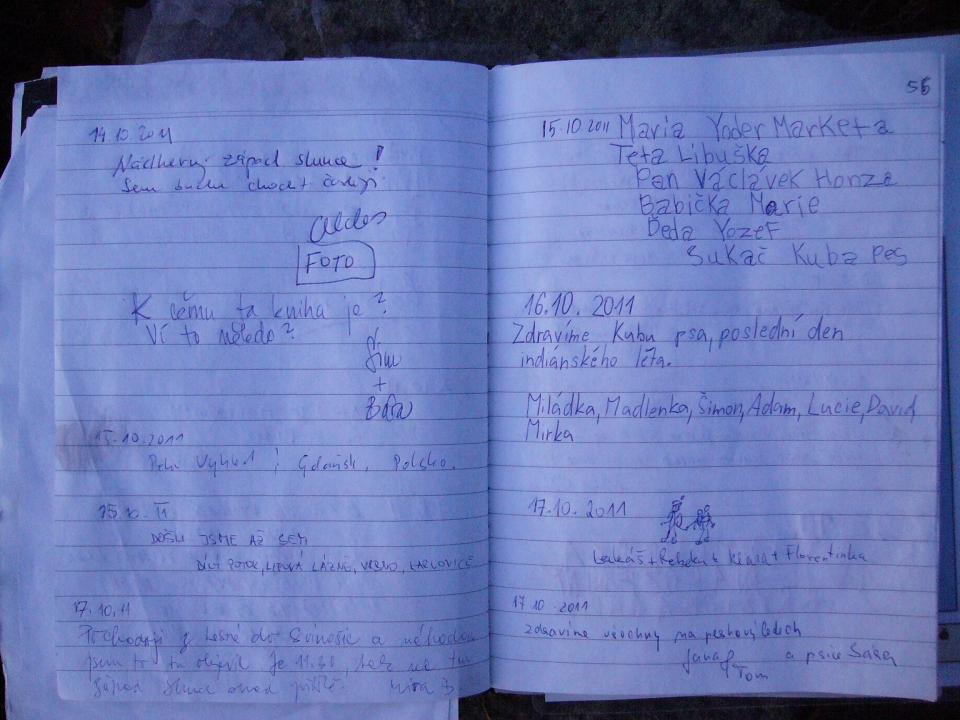 14.10.2011
Nádherný západ slunce!
Sem budem chodit častěji.
FOTO
K čemu ta kniha je?
Ví to někdo?
+
Bára
15.10.2011
Gdańsk, Polsko.
15.10.11
DOŠLI JSME AŽ SEM
LIPOVÁ LÁZNĚ, KARLOVICE
17.10.11
Pochoduji z Lesné do a náhodou
jsem to tu objevil je 11.30, tak na ten
západ slunce snad příště. Míra B
56
15.10.2011 Maria Yoder Marketa
Teta Libuška
Pan Václávek Honza
Babička Marie
Děda Yozef
Sukač Kuba Pes
16.10.2011
Zdravíme Kubu psa, poslední den
indiánského léta.
Miládka, Madlenka, Šimon, Adam, Lucie, David
Mirka
17.10.2011
Lukáš + Rebeka + Klára + Florentinka
17.10.2011
zdravíme všechny na
Jana a psice Sára
Tom